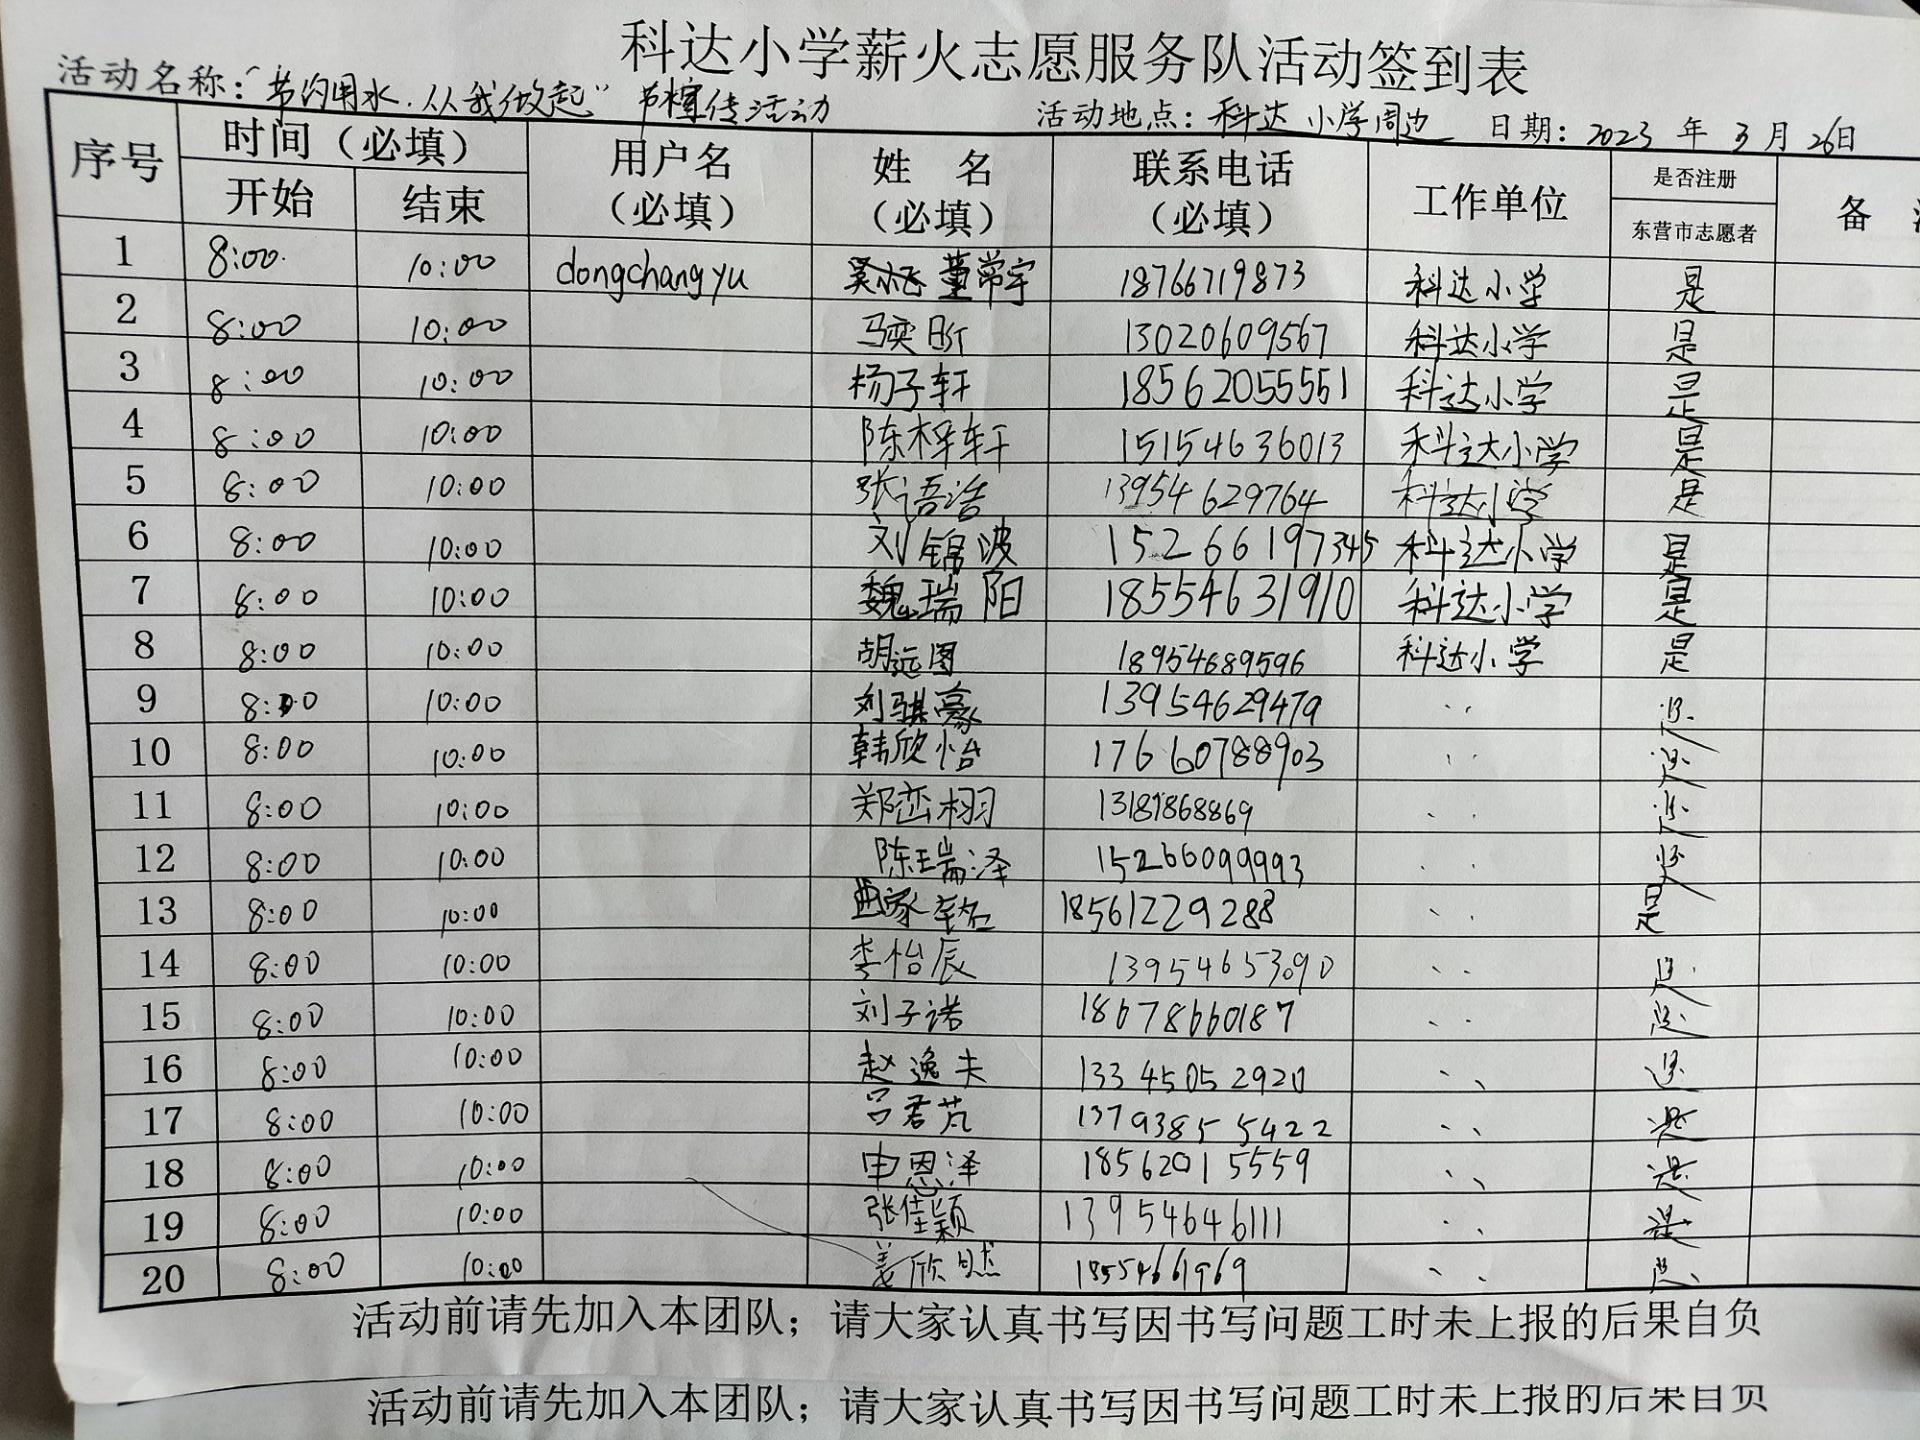 科达小学薪火志愿服务队活动签到表
活动名称:“节约用水.从我做起” 宣传活动 活动地点:科达小学周边 日期:2023年3月26日
序号 时间(必填) 用户名(必填) 姓 名(必填) 联系电话(必填) 工作单位 是否注册 备
开始 结束 东营市志愿者
1 8:00 10:00 dongchangyu 董常宇 18766719873 科达小学 是
2 8:00 10:00 马奕昕 13020609567 科达小学 是
3 8:00 10:00 杨子轩 18562055551 科达小学 是
4 8:00 10:00 陈梓轩 15154636013 科达小学 是
5 8:00 10:00 张语浩 13954629764 科达小学 是
6 8:00 10:00 刘锦波 15266197345 科达小学 是
7 8:00 10:00 魏瑞阳 18554631910 科达小学 是
8 8:00 10:00 胡远图 18954689596 科达小学 是
9 8:00 10:00 刘骐豪 13954629479 〃 是
10 8:00 10:00 韩欣怡 17660788903 〃 是
11 8:00 10:00 郑栩 13181868869 〃 是
12 8:00 10:00 陈瑞泽 15266099993 〃 是
13 8:00 10:00 18561229288 〃 是
14 8:00 10:00 李怡辰 13954653090 〃 是
15 8:00 10:00 刘子诺 18678660187 〃 是
16 8:00 10:00 赵逸夫 13345052920 〃 是
17 8:00 10:00 吕君芃 13793855422 〃 是
18 8:00 10:00 申恩泽 18562015559 〃 是
19 8:00 10:00 张佳颖 13954646111 〃 是
20 8:00 10:00 姜欣然 18554661969 〃 是
活动前请先加入本团队;请大家认真书写因书写问题工时未上报的后果自负
活动前请先加入本团队;请大家认真书写因书写问题工时未上报的后果自负